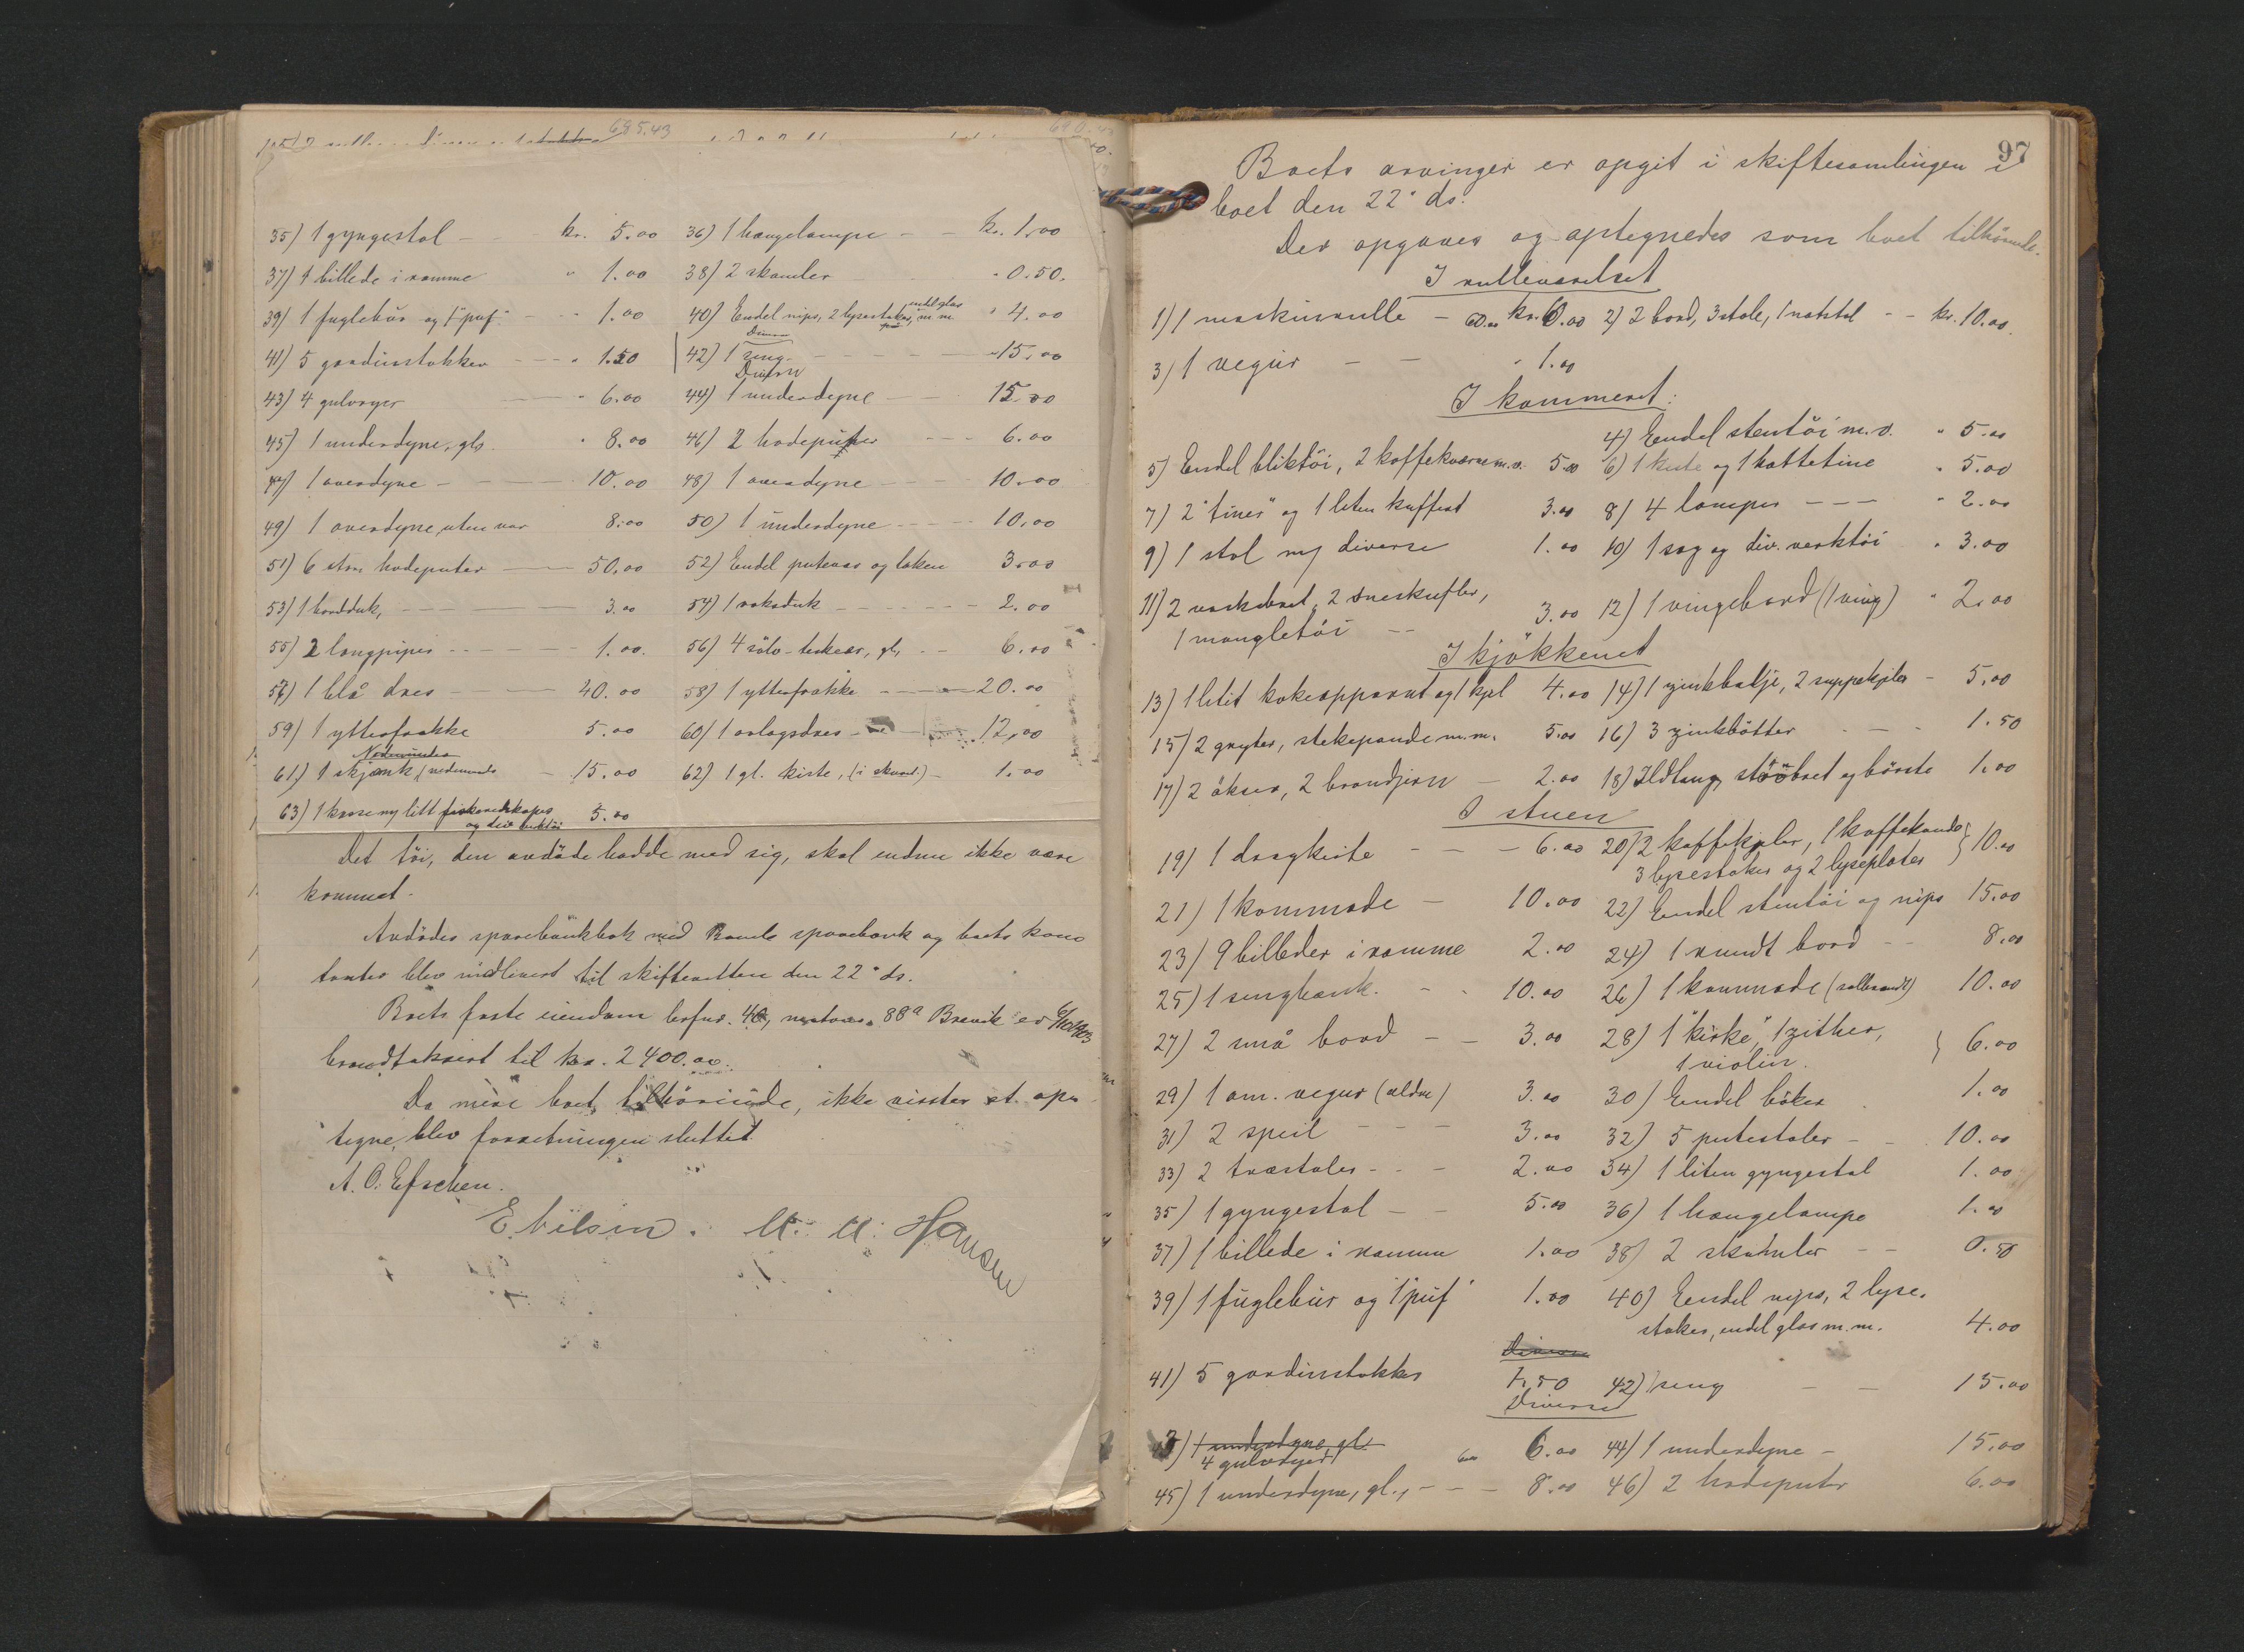 695.43
35) 1 gyngestol - kr. 5.00 36) 1 hængelampe - - kr. 1.00
37) 1 billede i ramme " 1.00 38) 2 skamler " 0.50.
39) 1 fuglebur og 1 "puf" - " 1.00 40) Endel nips, 2 lysestaker, endel glas m.m " 4.00
41) 5 gardinstokker - - - " 1.50 42) 1 seng - - - - - " 15.00
Diverse
43) 4 gulvryer - " 6.00 44) 1 underdyne - - 15.00
45) 1 underdyne, gl. " 8.00 46) 2 hodeputer - - - 6.00
47) 1 overdyne - - 10.00 48) 1 overdyne - - 10.00
49) 1 overdyne uten var 8.00 50) 1 underdyne - - - 10.00
51) 6 store hodeputer - 50.00 52) Endel putevar og laken 3.00
53) 1 bordduk, - - - - 3.00 54) 1 voksduk - - - - - 2.00
55) 2 langpiper - - - - - 1.00. 56) 4 sölv-teskeer, gl. - - 6.00
57) 1 blå dres - - - 40.00 58) 1 ytterfrakke - - - 20.00
59) 1 ytterfrakke 5.00 60) 1 arlagsdres - - 12,00
Nedenunder
61) 1 skjænk, (nedenunder - 15.00 62) 1 gl. kiste, (i skuret.) - 1.00
63) 1 kasse m/ litt fiskeredskaper 5.00
og div verktöi
Det töi, den avdöde hadde med sig, skal endnu ikke være
kommet.
Avdödes sparebankbok med Bamle sparebank og boets kon-
tanter blev indlevert til skifteretten den 22' ds.
Boets faste eiendom brfnr. 40, matr.nr. 88a Brevik er 6/10 1903
brandtaksert til kr. 2400.00.
Da mere boet tilhörende, ikke visstes at op-
tegne, blev forretningen sluttet.
A. O. Efscken.
E. Nilsen. M. M. Hansen
97
Boets arvinger er opgit i skiftesamlingen i
boet den 22' ds.
Der opgaves og optegnedes som boet tilhörende.
I rulleværelset
1) 1 maskinrulle - 60.00 kr. 60.00 2) 2 bord, 3 stole, 1 natstol - - kr. 10.00.
3) 1 vegur - - " 1.00
I kammeret:
4) Endel stentöi m.v. " 5.00
5) Endel bliktöi, 2 kaffekværne m.v. 5.00 6) 1 kiste og 1 hattetine " 5.00
7) 2 "tiner" og 1 liten kuffert 3.00 8) 4 lamper - - - " 2.00
9) 1 stol m/ diverse 1.00 10) 1 sag og div. verktöi " 3.00
11) 2 vaskebret, 2 sneskufler,
1 mangletöi - - 3.00 12) 1 vingebord (1 ving) " 2.00
I kjökkenet
13) 1 litet kokeapparat og 1 kjel 4.00 14) 1 zinkbalje, 2 suppekjeler - 5.00
15) 2 gryter, stekepande m.m. 5.00 16) 3 zinkbötter - - 1.50
17) 2 økser, 2 brandjern - 2.00 18) Ildtang, stöbret og börste 1.00
I stuen
19) 1 dragkiste - - - 6.00 20) 2 kaffekjeler, 1 kaffekande
3 lysestaker og 2 lyseplater } 10.00
21) 1 kommode - 10.00 22) Endel stentöi og nips 15.00
23) 9 billeder i ramme 2.00 24) 1 rundt bord - - 8.00
25) 1 sengbænk. - - 10.00 26) 1 kommode 10.00
27) 2 små bord - - 3.00 28) 1 "kirke", 1 zither,
1 violin. } 6.00
29) 1 am. vegur (ældre) 3.00 30) Endel böker 1.00
31) 2 speil - - - 3.00 32) 5 putestoler - - 10.00
33) 2 træstoler - - - 2.00 34) 1 liten gyngestol 1.00
35) 1 gyngestol - - 5.00 36) 1 hængelampe 1.00
37) 1 billede i ramme 1.00 38) 2 skamler - - 0.50
39) 1 fuglebur og 1 "puf" 1.00 40) Endel nips, 2 lyse-
staker, endel glas m.m. 4.00
Diverse
41) 5 gardinstokker 1.50 42) 1 seng - - 15.00
Diverse
43) 1 underdyne, gl.
4 gulvryer 6.00 44) 1 underdyne - 15.00
45) 1 underdyne, gl., - - - 8.00 46) 2 hodeputer 6.00